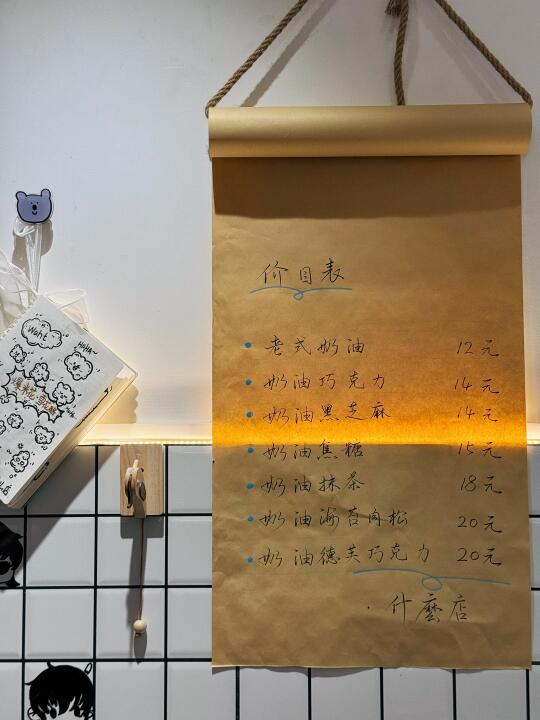 价目表
老式奶油 12元
奶油巧克力 14元
奶油黑芝麻 14元
奶油焦糖 15元
奶油抹茶 18元
奶油海苔肉松 20元
奶油德芙巧克力 20元
·什麼店
Want
HaHA~